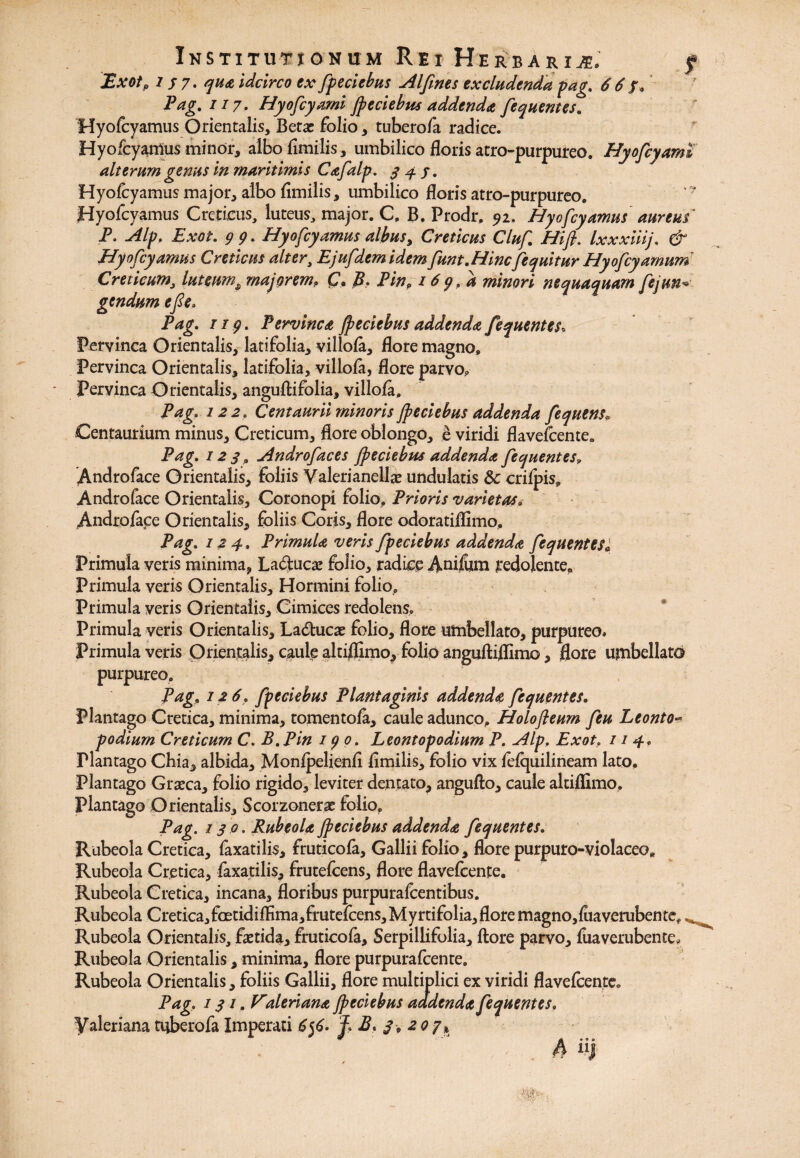 INSTITUTIONUM REI HERBARIÆ. 5
Exot. 157. quæ idcirco ex ſpeciebus Alſines excludenda pag. 665.
Pag. 117. Hyoſcyami ſpeciebus addendæ ſequentes.
Hyoſcyamus Orientalis, Betæ folio, tuberoſa radice.
Hyoſcyamus minor, albo ſimilis, umbilico floris atro-purpureo. Hyoſcyami
alterum genus in maritimis Cæſalp. 345.
Hyoſcyamus major, albo ſimilis, umbilico floris atro-purpureo.
Hyoſcyamus Creticus, luteus, major. C. B. Prodr. 92. Hyoſcyamus aureus
P. Alp. Exot. 99. Hyoſcyamus albus, Creticus Cluſ. Hiſt. lxxxiiij. &
Hyoſcyamus Creticus alter, Ejuſdem idem ſunt. Hinc ſequitur Hyoſcyamum
Creticum, luteum, majorem, C. B. Pin. 169. à minori nequaquam ſejun-
gendum eſſe.
Pag. 119. Pervincæ ſpeciebus addendæ ſequentes.
Pervinca Orientalis, latifolia, villoſa, flore magno.
Pervinca Orientalis, latifolia, villoſa, flore parvo.
Pervinca Orientalis, anguſtifolia, villoſa.
Pag. 122. Centaurii minoris ſpeciebus addenda ſequens.
Centaurium minus, Creticum, flore oblongo, è viridi flaveſcente.
Pag. 123. Androſaces ſpeciebus addendæ ſequentes.
Androſace Orientalis, foliis Valerianellæ undulatis & criſpis.
Androſace Orientalis, Coronopi folio. Prioris varietas.
Androſace Orientalis, foliis Coris, flore odoratiſſimo.
Pag. 124. Primulæ veris ſpeciebus addendæ ſequentes.
Primula veris minima, Lactucæ folio, radice Aniſum redolente.
Primula veris Orientalis, Hormini folio.
Primula veris Orientalis, Cimices redolens.
Primula veris Orientalis, Lactucæ folio, flore umbellato, purpureo.
Primula veris Orientalis, caule altiſſimo, folio anguſtiſſimo, flore umbellato
purpureo.
Pag. 126. ſpeciebus Plantaginis addendæ ſequentes.
Plantago Cretica, minima, tomentoſa, caule adunco. Holoſteum ſeu Leonto-
podium Creticum C. B. Pin 190. Leontopodium P. Alp. Exot. 114.
Plantago Chia, albida, Monſpelienſi ſimilis, folio vix ſeſquilineam lato.
Plantago Græca, folio rigido, leviter dentato, anguſto, caule altiſſimo.
Plantago Orientalis, Scorzoneræ folio.
Pag. 130. Rubeolæ ſpeciebus addendæ ſequentes.
Rubeola Cretica, ſaxatilis, fruticoſa, Gallii folio, flore purpuro-violaceo.
Rubeola Cretica, ſaxatilis, fruteſcens, flore flaveſcente.
Rubeola Cretica, incana, floribus purpuraſcentibus.
Rubeola Cretica, fœtidiſſima, fruteſcens, Myrtifolia, flore magno, ſuaverubente.
Rubeola Orientalis, fætida, fruticoſa, Serpillifolia, flore parvo, ſuaverubente.
Rubeola Orientalis, minima, flore purpuraſcente.
Rubeola Orientalis, foliis Gallii, flore multiplici ex viridi flaveſcente.
Pag. 131. Valerianæ ſpeciebus addendæ ſequentes.
Valeriana tuberoſa Imperati 656. J. B. 3. 207.
A iij